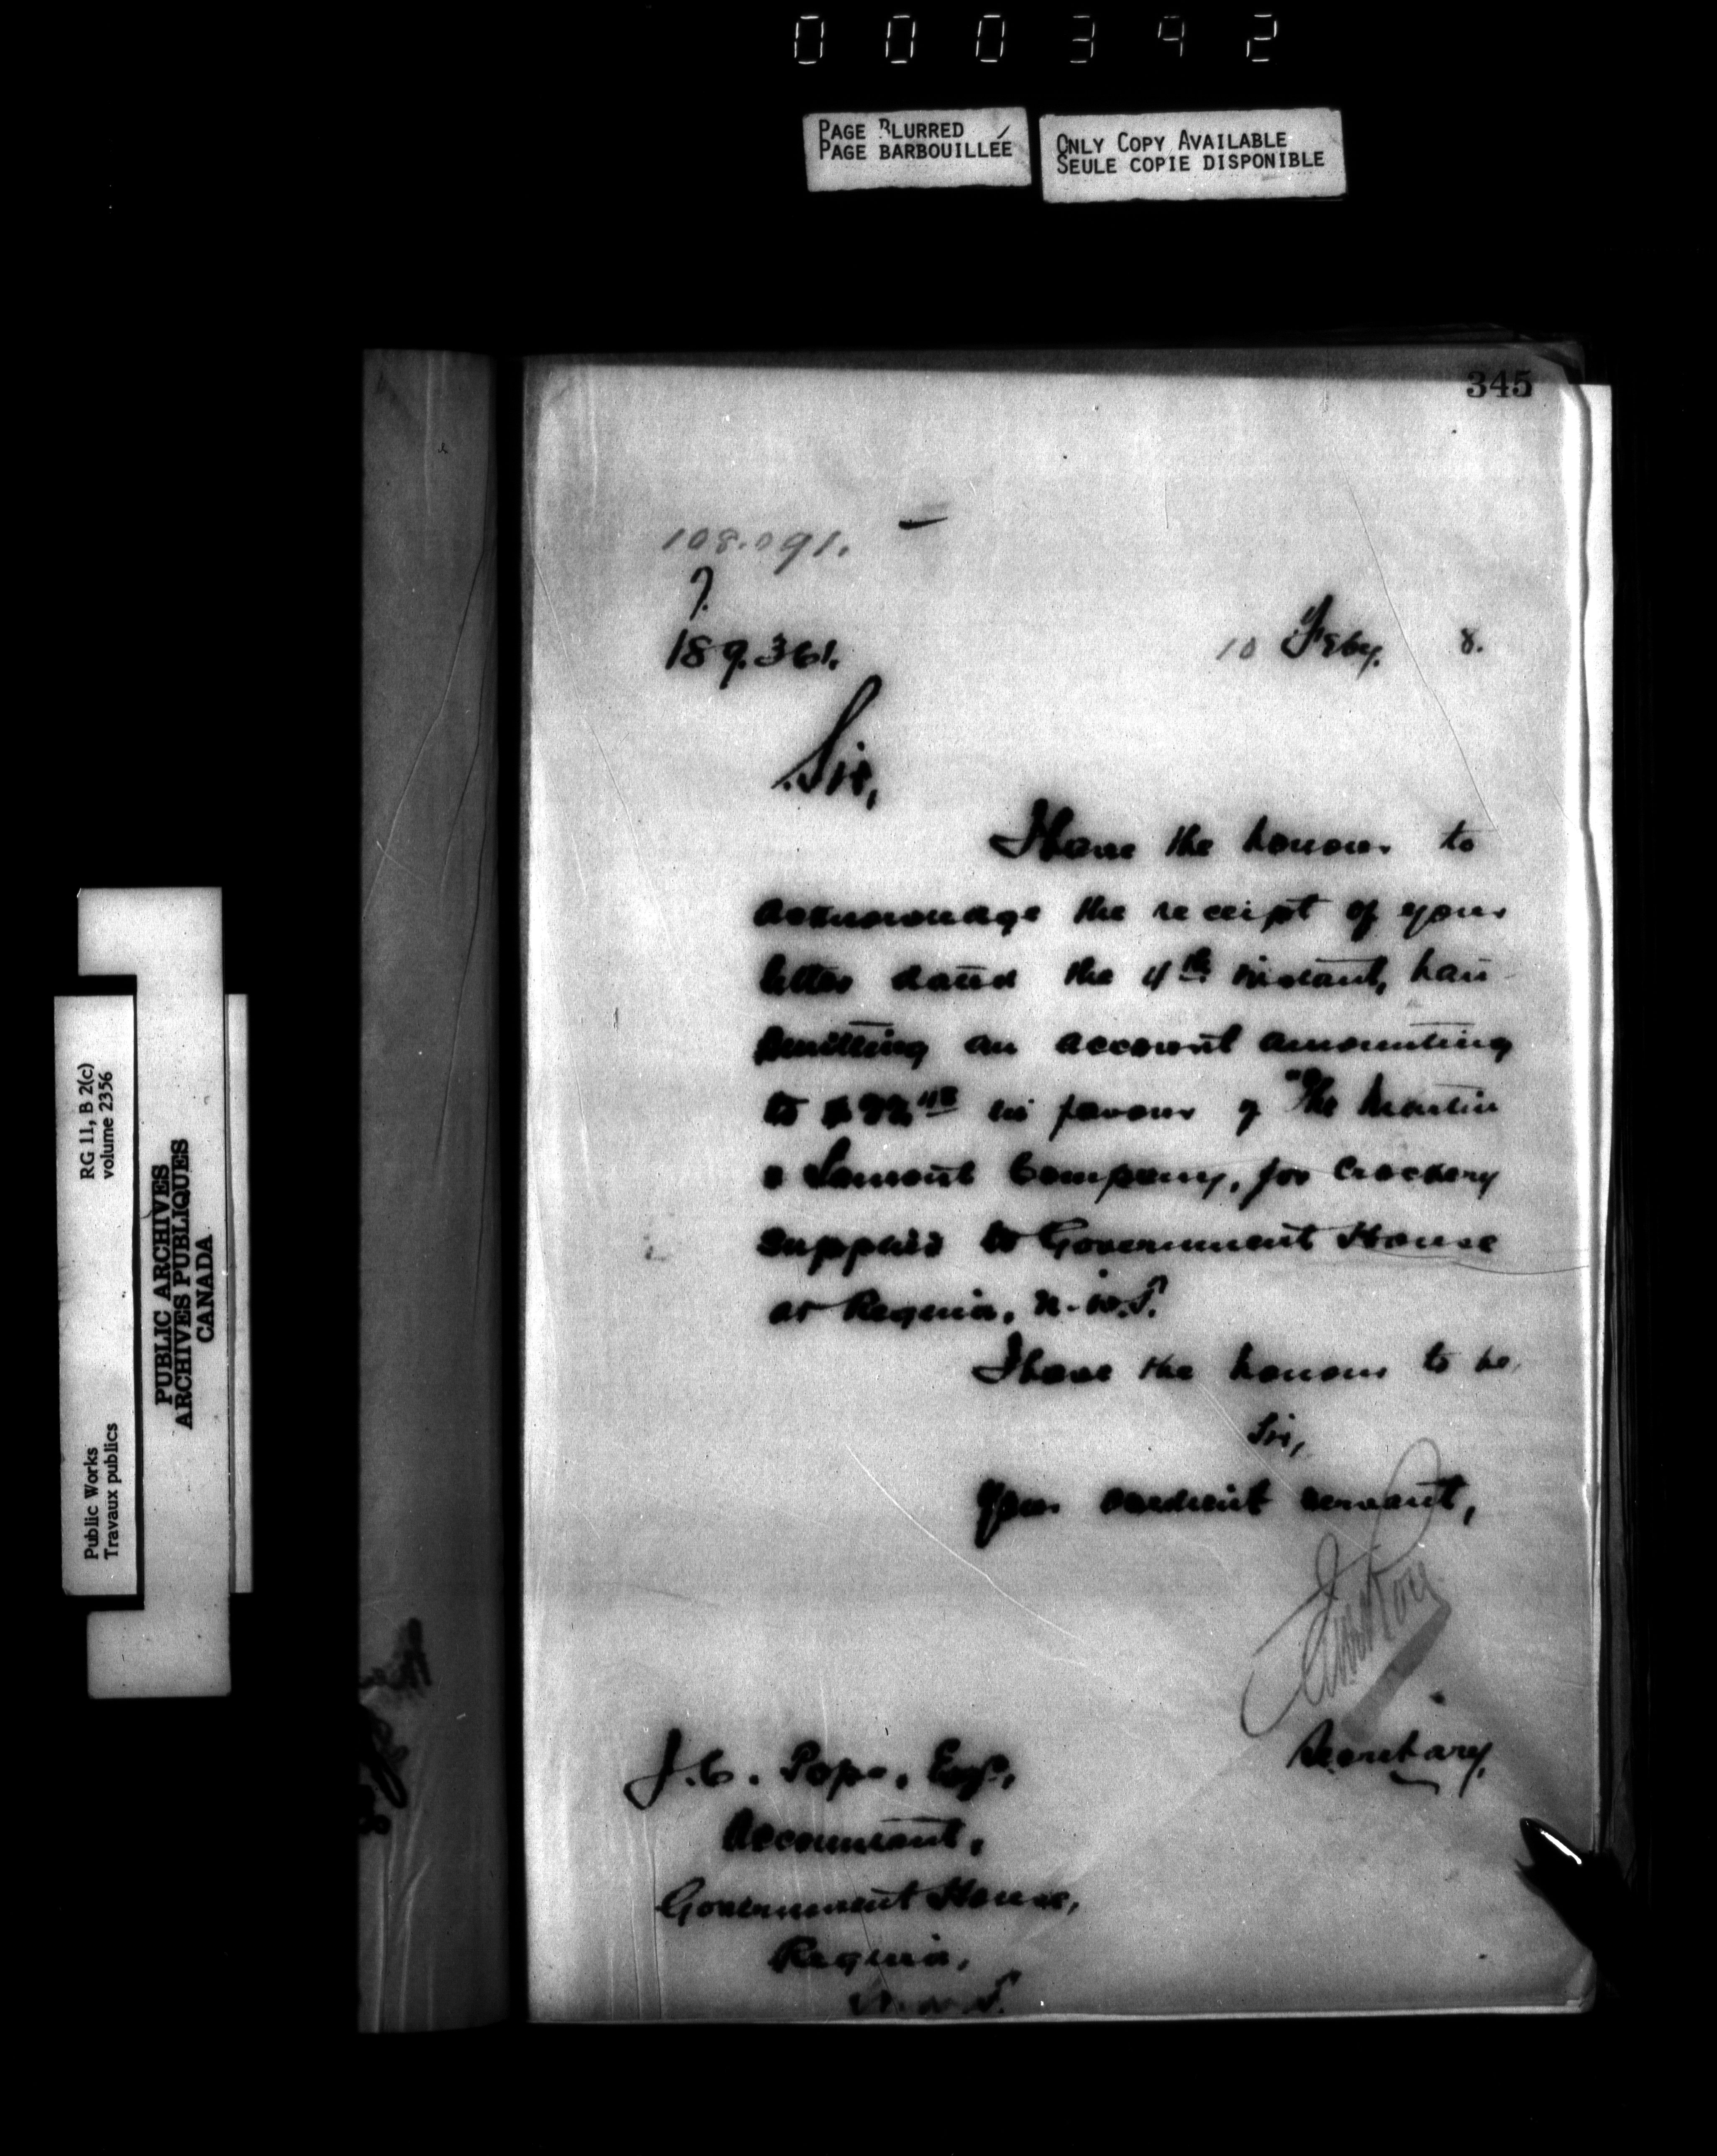 000342
PAGE BLURRED
PAGE BARBOUILLÉE
ONLY COPY AVAILABLE
SEULE COPIE DISPONIBLE
345
108.091.
7.
189.361.
10 Feby. 8.
Sir,
I have the honour to
acknowledge the receipt of your
letter dated the 4th instant, trans-
mitting an account amounting
to in favour of "The Martin
& Lamont Company, for crockery
supplied to Government House
at Regina, N.W.T.
I have the honour to be,
Sir,
Your obedient servant,
Secretary.
J.C. Pope, Esq.,
Accountant,
Government House,
Regina,
N.W.T.
Public Works
Travaux publics
RG 11, B 2(c)
volume 2356
PUBLIC ARCHIVES
ARCHIVES PUBLIQUES
CANADA